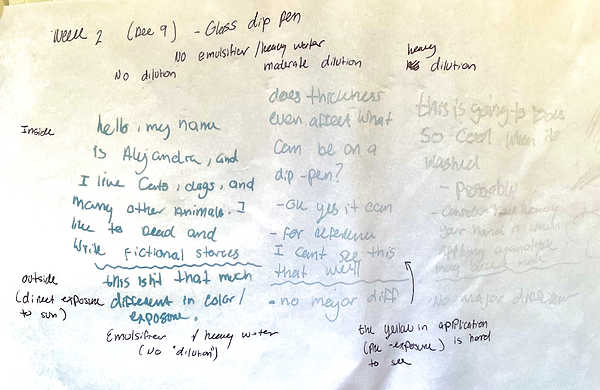 Week 2 (Dec 9) - Glass dip pen
No emulsifier / heavy water
No dilution
moderate dilution
heavy dilution
Inside
hello, my name
is Alejandra, and
I like Cats, dogs, and
many other animals. I
like to read and
write fictional stories
does thickness
even affect what
can be on a
dip-pen?
- OK yes it can
- for reference
I can't see this
that well
this is going to look
so cool when its
washed
- Probably
- Consider how heavy
your hand is when
applying
outside
(direct exposure
to sun)
this isn't that much
different in color/
exposure.
- no major diff
- No major
Emulsifier / heavy water
(No "dilution")
the yellow in application
(pre-exposure) is hard
to see